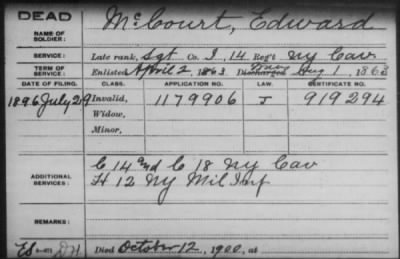 DEAD
NAME OF SOLDIER: McCourt, Edward
SERVICE: Late rank, Sgt Co. I, 14 Reg't NY Cav
TERM OF SERVICE: Enlisted April 2, 1863 Discharged Aug 1, 1863
DATE OF FILING. CLASS. APPLICATION NO. LAW. CERTIFICATE NO.
1896 July 29 Invalid, 1179906 J 919294
Widow,
Minor,
C 14 and C 18 NY Cav
ADDITIONAL SERVICES: H 12 NY Mil Inf
REMARKS:
Died October 12, 1900, at